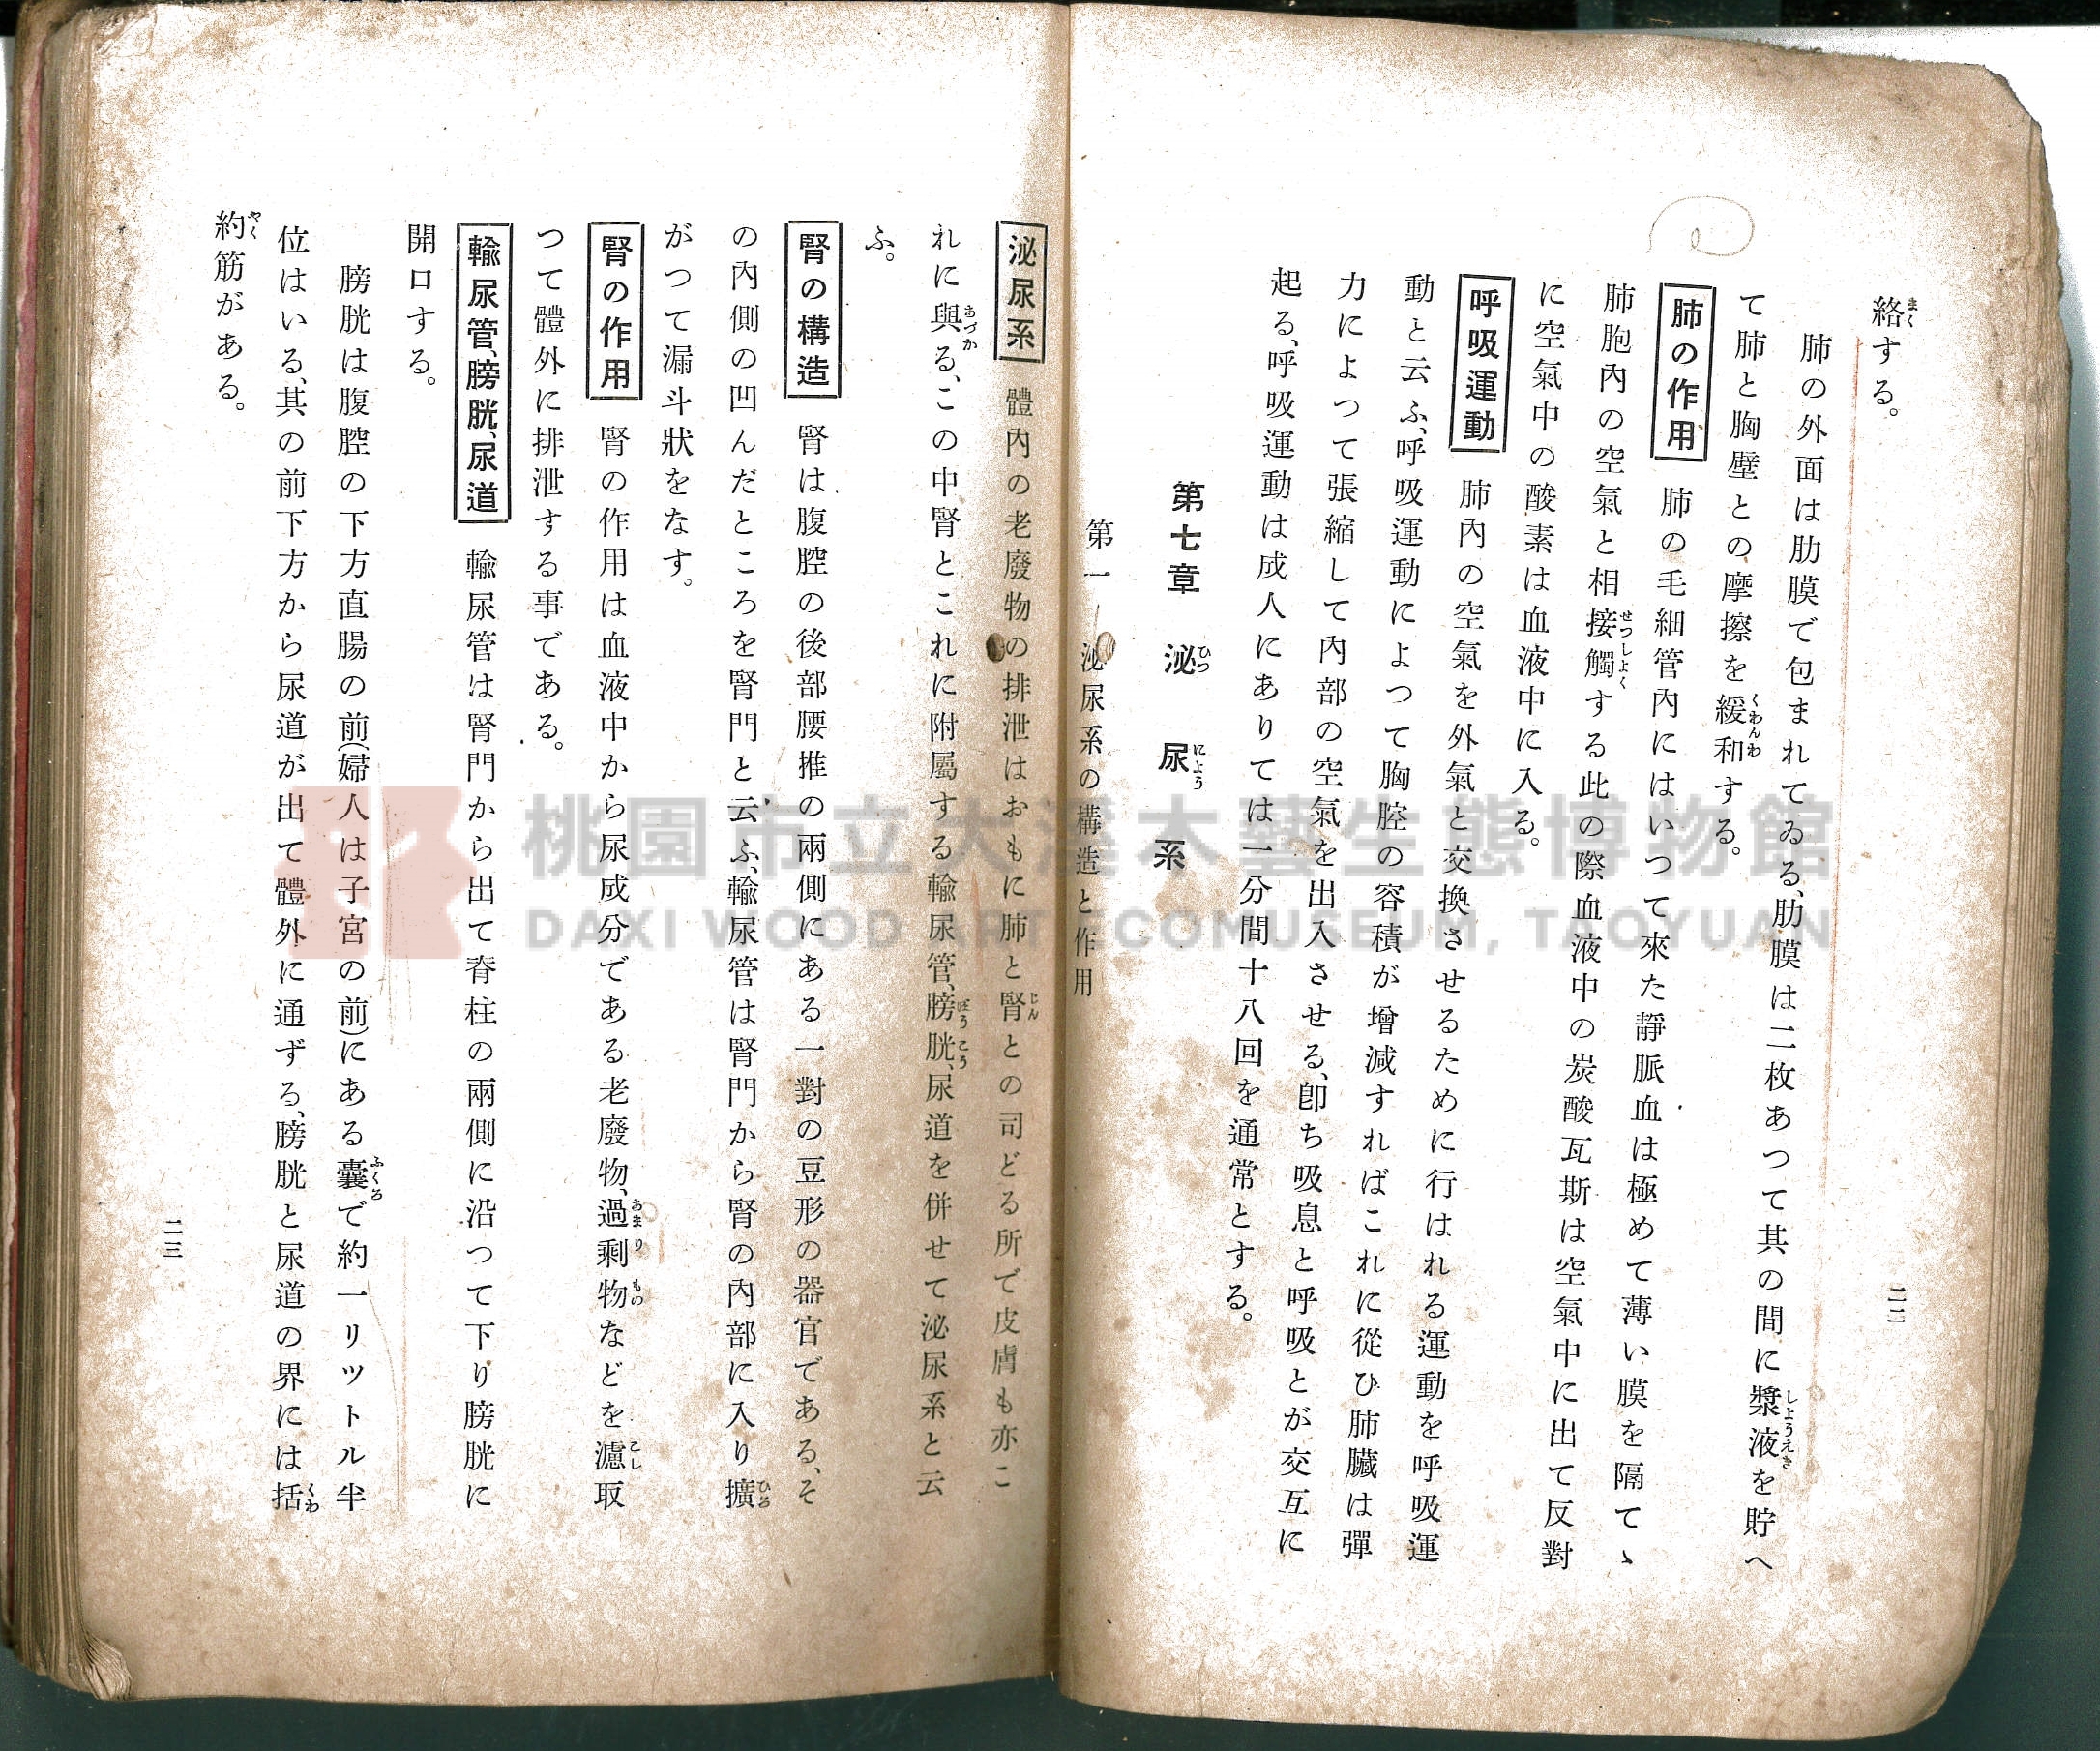 絡する。
肺の外面は肋膜で包まれてゐる、肋膜は二枚あつて其の間に漿液を貯へ
て肺と胸壁との摩擦を緩和する。
肺の作用 肺の毛細管內にはいつて來た靜脈血は極めて薄い膜を隔てゝ
肺胞內の空氣と相接觸する此の際血液中の炭酸瓦斯は空氣中に出て反對
に空氣中の酸素は血液中に入る。
呼吸運動 肺內の空氣を外氣と交換させるために行はれる運動を呼吸運
動と云ふ、呼吸運動によつて胸腔の容積が增減すればこれに從ひ肺臟は彈
力によつて張縮して內部の空氣を出入させる、卽ち吸息と呼吸とが交互に
起る、呼吸運動は成人にありては一分間十八回を通常とする。
第七章 泌尿系
第一 泌尿系の構造と作用
二二
泌尿系 體內の老廢物の排泄はおもに肺と腎との司どる所で皮膚も亦こ
れに與る、この中腎とこれに附屬する輸尿管、膀胱、尿道を併せて泌尿系と云
ふ。
腎の構造 腎は腹腔の後部腰推の兩側にある一對の豆形の器官である、そ
の內側の凹んだところを腎門と云ふ、輸尿管は腎門から腎の內部に入り擴
がつて漏斗狀をなす。
腎の作用 腎の作用は血液中から尿成分である老廢物、過剩物などを濾取
つて體外に排泄する事である。
輸尿管、膀胱、尿道 輸尿管は腎門から出て脊柱の兩側に沿つて下り膀胱に
開口する。
膀胱は腹腔の下方直腸の前(婦人は子宮の前)にある囊で約一リットル半
位はいる、其の前下方から尿道が出て體外に通ずる、膀胱と尿道の界には括
約筋がある。
二三
桃園市立大溪木藝生態博物館
DAXI WOOD ART ECOMUSEUM, TAOYUAN